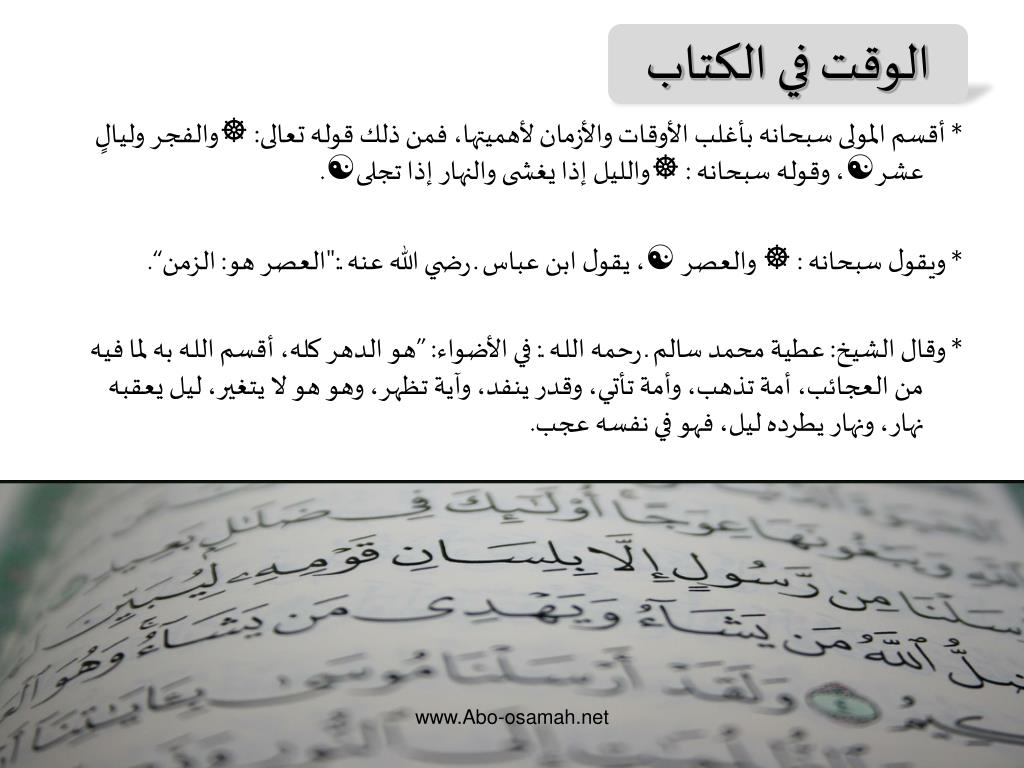 الوقت في الكتاب
* أقسم المولى سبحانه بأغلب الأوقات والأزمان لأهميتها، فمن ذلك قوله تعالى: ☸والفجر وليالٍ
عشر☯، وقوله سبحانه : ☸والليل إذا يغشى والنهار إذا تجلى☯.
* ويقول سبحانه : ☸ والعصر ☯، يقول ابن عباس.رضي الله عنه.:"العصر هو: الزمن“.
* وقال الشيخ: عطية محمد سالم.رحمه الله.: في الأضواء: ”هو الدهر كله، أقسم الله به لما فيه
من العجائب، أمة تذهب، وأمة تأتي، وقدر ينفد، وآية تظهر، وهو هو لا يتغير، ليل يعقبه
نهار، ونهار يطرده ليل، فهو في نفسه عجب.
ٱللَّهِ وَيَبْغُونَهَا عِوَجًا أُوْلَـٰٓئِكَ فِى ضَلَـٰلٍۭ بَعِيدٍ
مِن رَّسُولٍ إِلَّا بِلِسَانِ قَوْمِهِۦ لِيُبَيِّنَ
ٱللَّهُ مَن يَشَآءُ وَيَهْدِى مَن يَشَآءُ وَهُوَ
وَلَقَدْ أَرْسَلْنَا مُوسَىٰ بِـَٔايَـٰتِنَآ
www.Abo-osamah.net